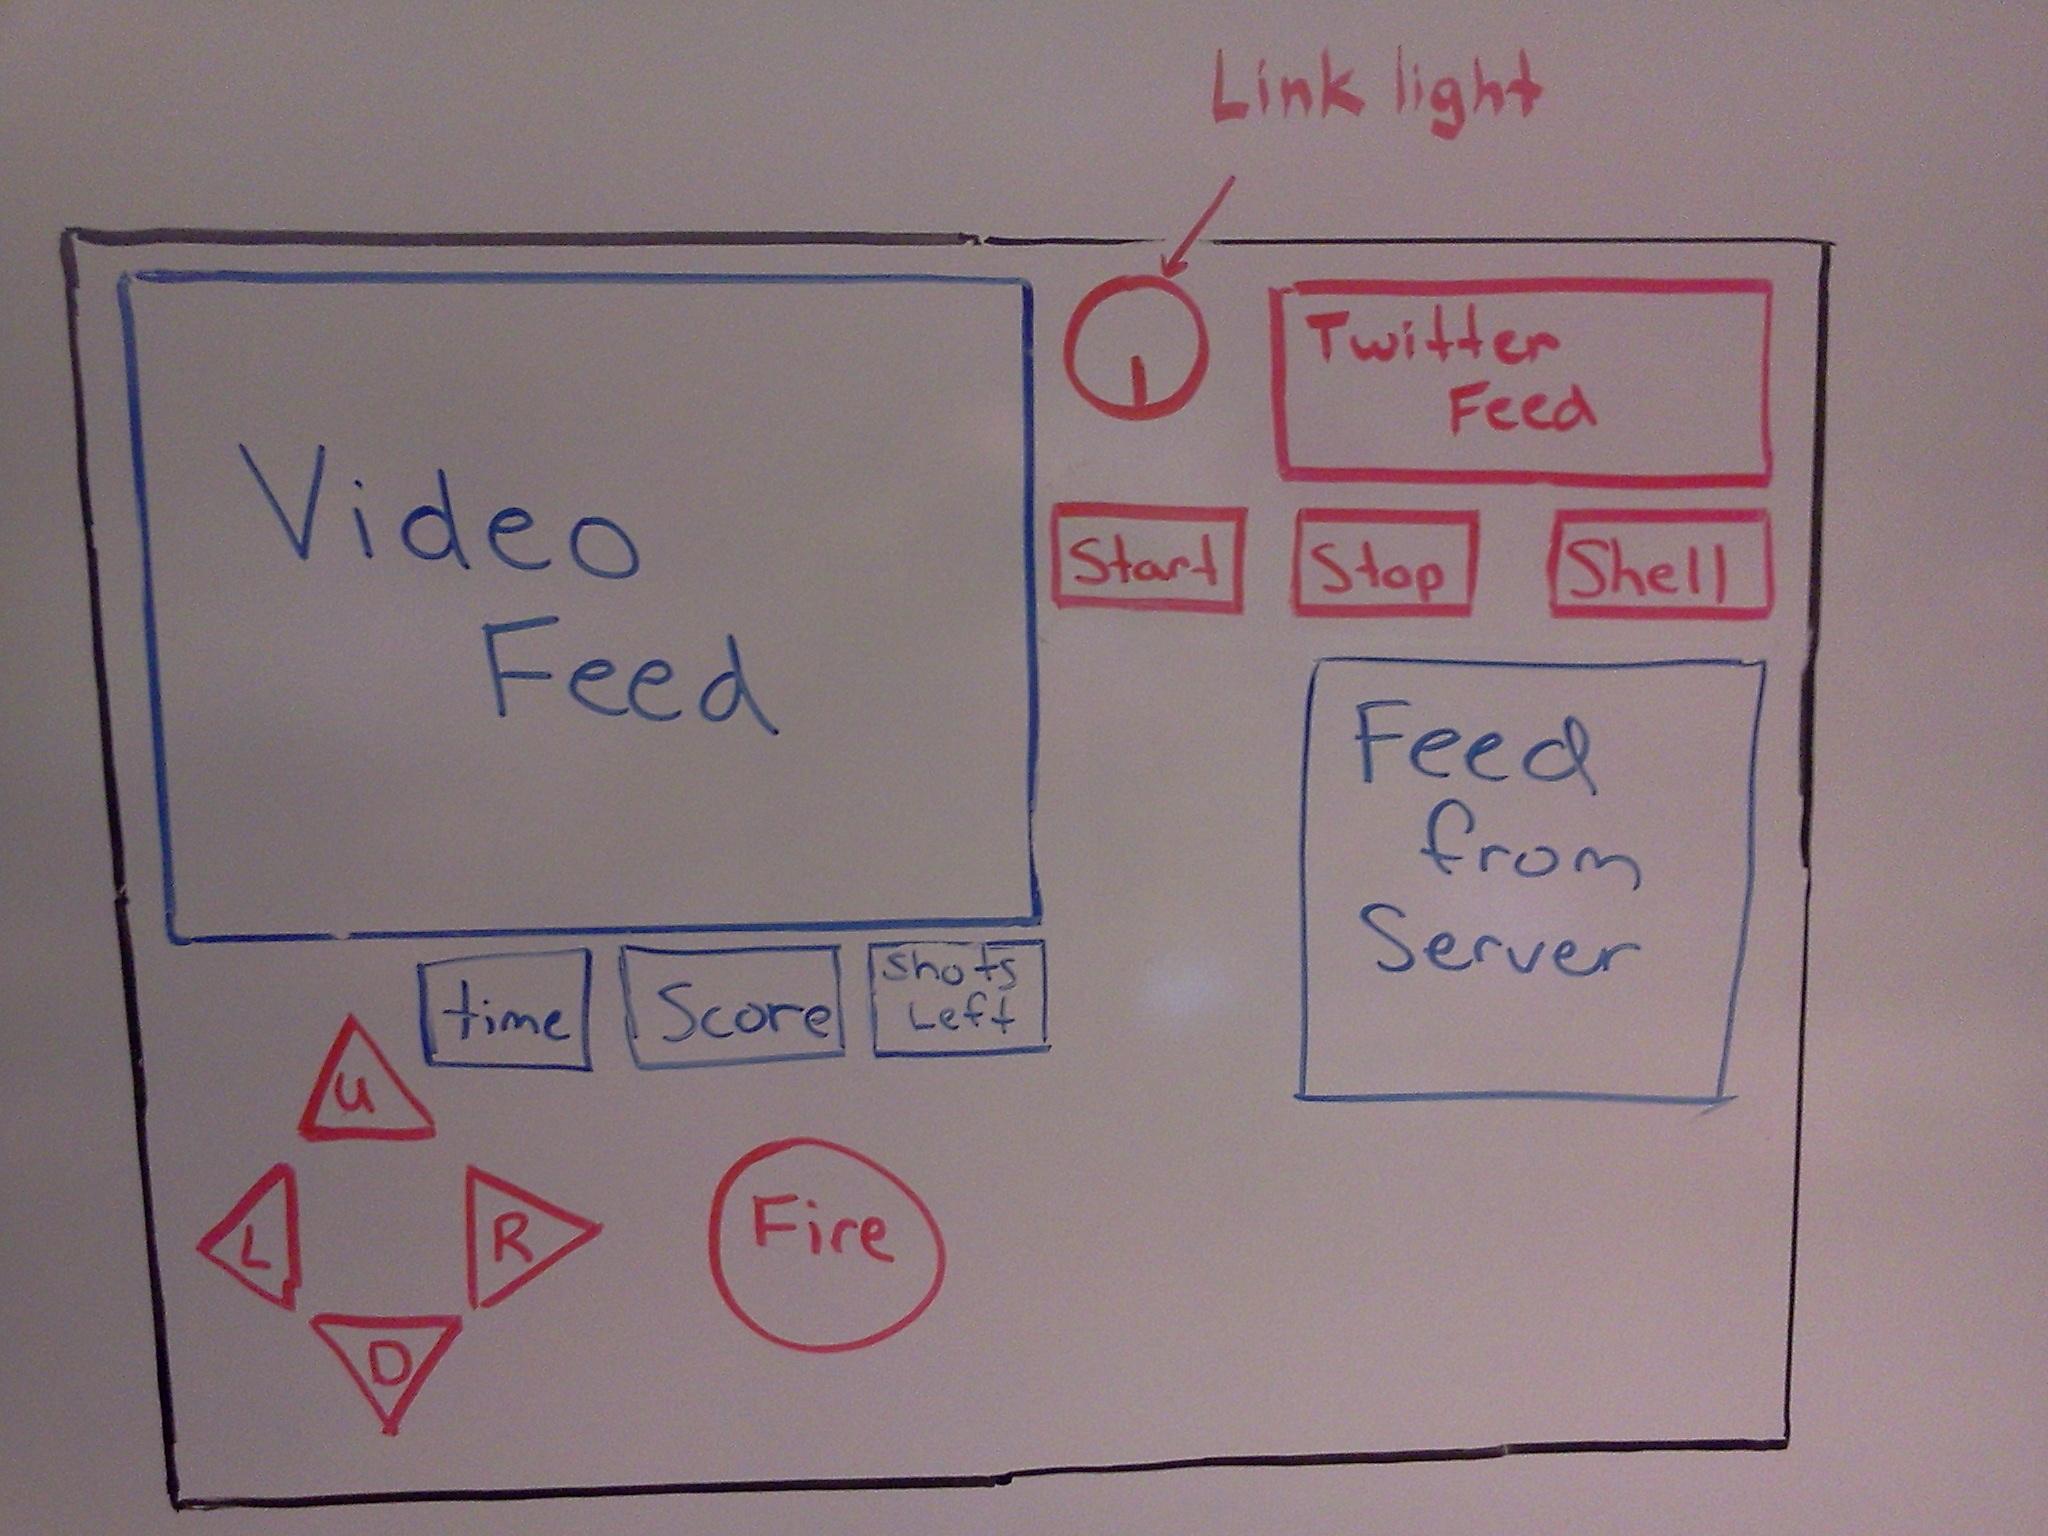 Link light
Video
Feed
Twitter
Feed
Start
Stop
Shell
Feed
from
Server
time
Score
Shots
Left
U
L
R
D
Fire